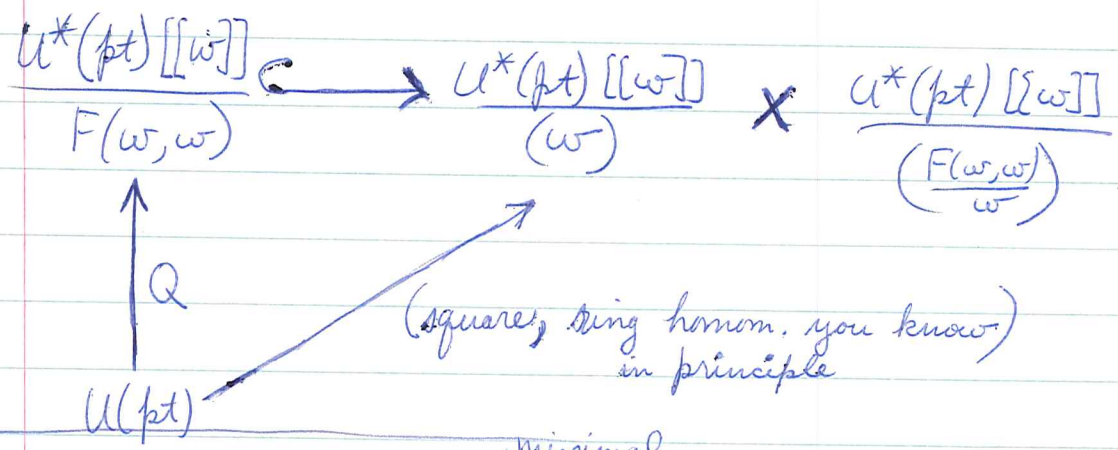 U*(pt)[[w]] / F(w,w) ↪ U*(pt)[[w]] / (w) × U*(pt)[[w]] / (F(w,w)/w)
Q
(square, ring homom. you know)
in principle
U(pt)
minimal